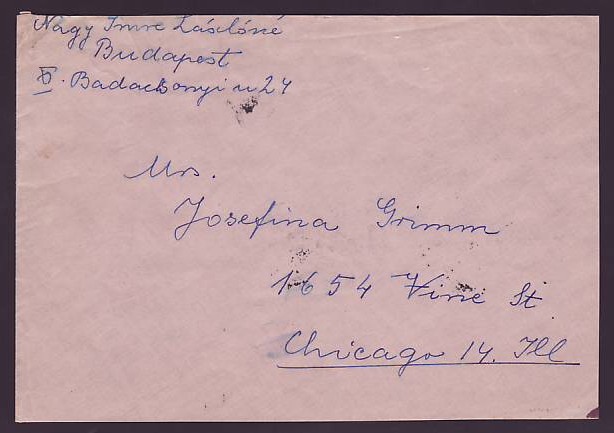 Nagy Imre Lászlóné
Budapest
XI. Badacsonyi u 24
Mrs.
Josefina Grimm
1654 Vine St
Chicago 14. Ill